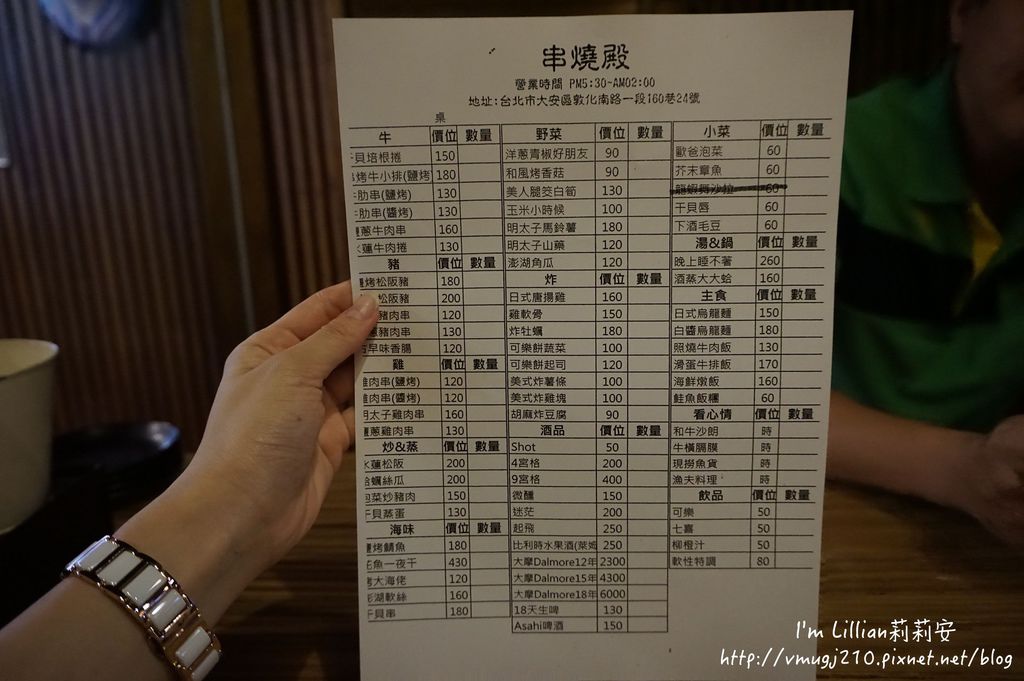 串燒殿
營業時間 PM5:30~AM02:00
地址:台北市大安區敦化南路一段160巷24號
桌
牛 價位 數量
貝培根捲 150
烤牛小排(鹽烤) 180
肋串(鹽烤) 130
肋串(醬烤) 130
蔥牛肉串 160
蓮牛肉捲 130
豬 價位 數量
烤松阪豬 180
松阪豬 200
豬肉串 120
豬肉串 130
早味香腸 120
雞 價位 數量
雞肉串(鹽烤) 120
雞肉串(醬烤) 120
明太子雞肉串 160
蔥雞肉串 130
炒&蒸 價位 數量
水蓮松阪 200
蛤蠣絲瓜 200
泡菜炒豬肉 150
干貝蒸蛋 130
海味 價位 數量
烤鯖魚 180
魚一夜干 430
烤大海佬 120
澎湖軟絲 160
干貝串 180
野菜 價位 數量
洋蔥青椒好朋友 90
和風烤香菇 90
美人腿筊白筍 130
玉米小時候 100
明太子馬鈴薯 180
明太子山藥 120
澎湖角瓜 120
炸 價位 數量
日式唐揚雞 160
雞軟骨 150
炸牡蠣 180
可樂餅蔬菜 100
可樂餅起司 120
美式炸薯條 100
美式炸雞塊 100
胡麻炸豆腐 90
酒品 價位 數量
Shot 50
4宮格 200
9宮格 400
微醺 150
迷茫 200
起飛 250
比利時水果酒(萊姆 250
大摩Dalmore12年 2300
大摩Dalmore15年 4300
大摩Dalmore18年 6000
18天生啤 130
Asahi啤酒 150
小菜 價位 數量
歐爸泡菜 60
芥末章魚 60
龍蝦舞沙拉 60
干貝唇 60
下酒毛豆 60
湯&鍋 價位 數量
晚上睡不著 260
酒蒸大大蛤 160
主食 價位 數量
日式烏龍麵 150
白醬烏龍麵 180
照燒牛肉飯 130
滑蛋牛排飯 170
海鮮燉飯 160
鮭魚飯糰 60
看心情 價位 數量
和牛沙朗 時
牛橫膈膜 時
現撈魚貨 時
漁夫料理 時
飲品 價位 數量
可樂 50
七喜 50
柳橙汁 50
軟性特調 80
I'm Lillian莉莉安
http://vmugj210.pixnet.net/blog